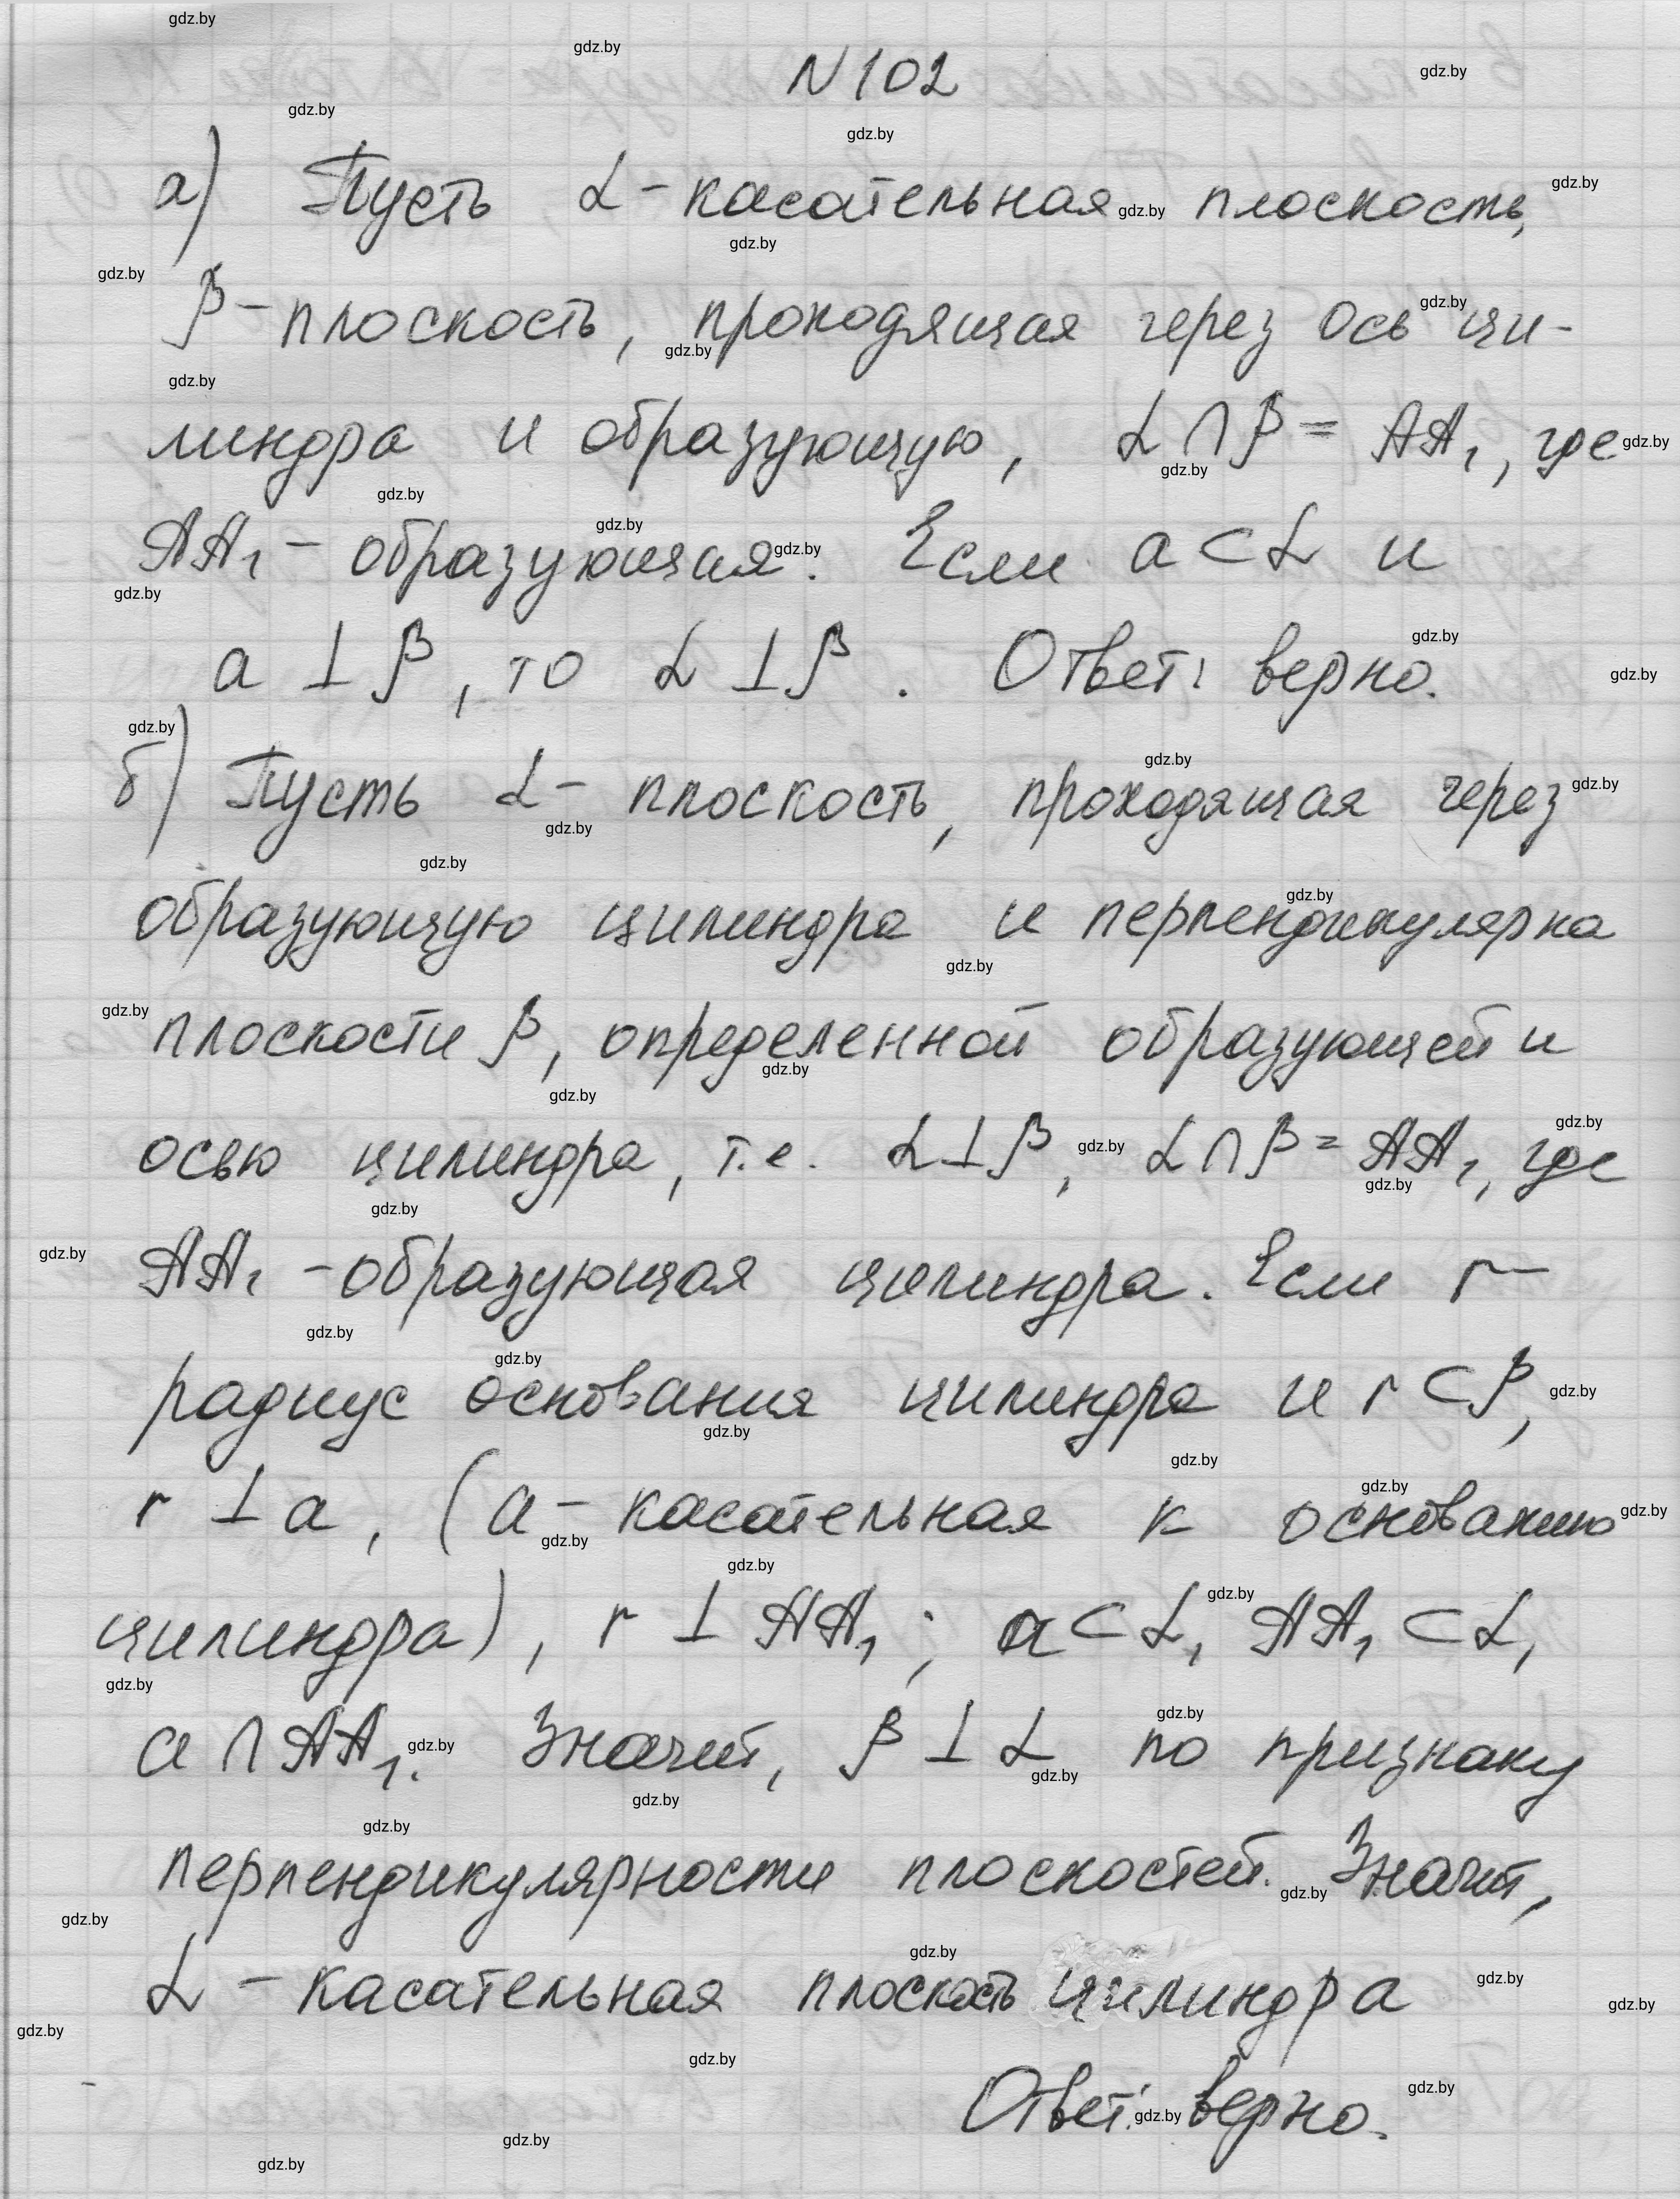 N 102
а) Пусть α - касательная плоскость,
β - плоскость, проходящая через ось ци-
линдра и образующую, α ∩ β = AA₁, где
AA₁ - образующая. Если a ⊂ α и
a ⊥ β, то α ⊥ β. Ответ: верно.
б) Пусть α - плоскость, проходящая через
образующую цилиндра и перпендикулярна
плоскости β, определенной образующей и
осью цилиндра, т.е. α ⊥ β, α ∩ β = AA₁, где
AA₁ - образующая цилиндра. Если r -
радиус основания цилиндра и r ⊂ β,
r ⊥ a, (a - касательная к основанию
цилиндра), r ⊥ AA₁; a ⊂ α, AA₁ ⊂ α,
a ∩ AA₁. Значит, β ⊥ α по признаку
перпендикулярности плоскостей. Значит,
α - касательная плоскость цилиндра
Ответ: верно.
gdz.by